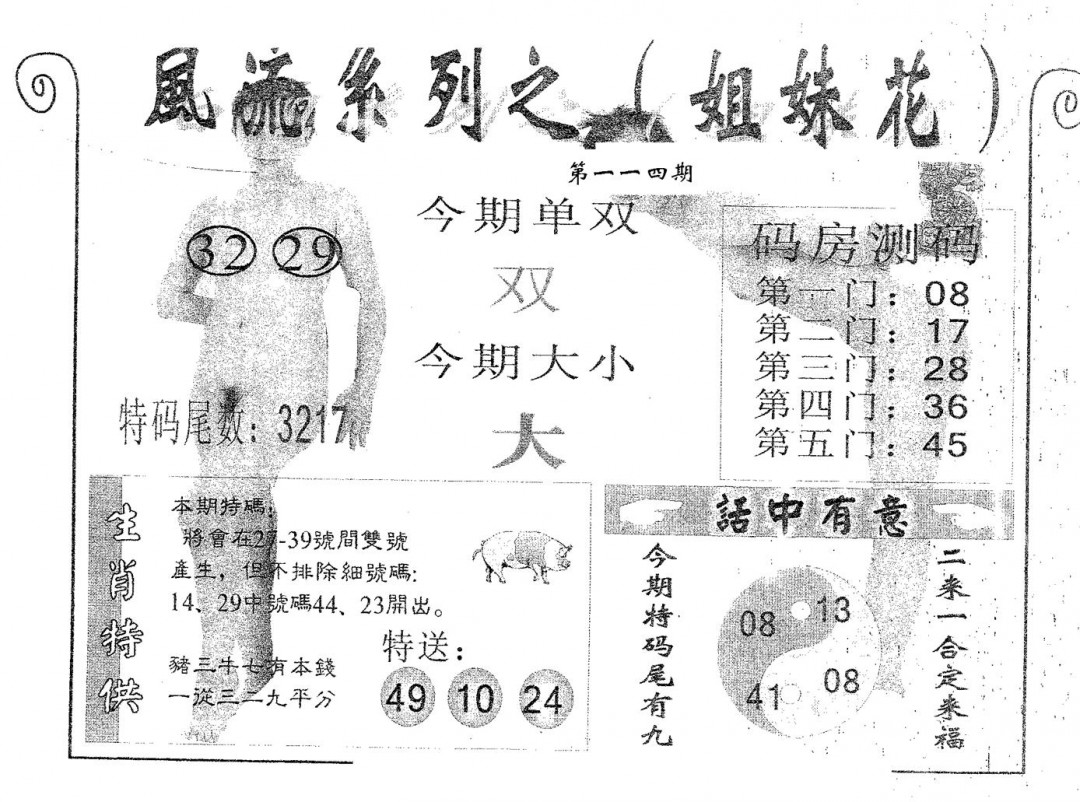 風流系列之（姐妹花）
第一一四期
32 29
今期单双
双
今期大小
大
特码尾数：3217
码房测码
第一门：08
第二门：17
第三门：28
第四门：36
第五门：45
生肖特供
本期特碼：
將會在27-39號間雙號
產生，但不排除細號碼：
14、29中號碼44、23開出。
豬三牛七有本錢
一從三二九平分
特送：
49 10 24
話中有意
今期特码尾有九
08 13
41 08
二来一合定来福